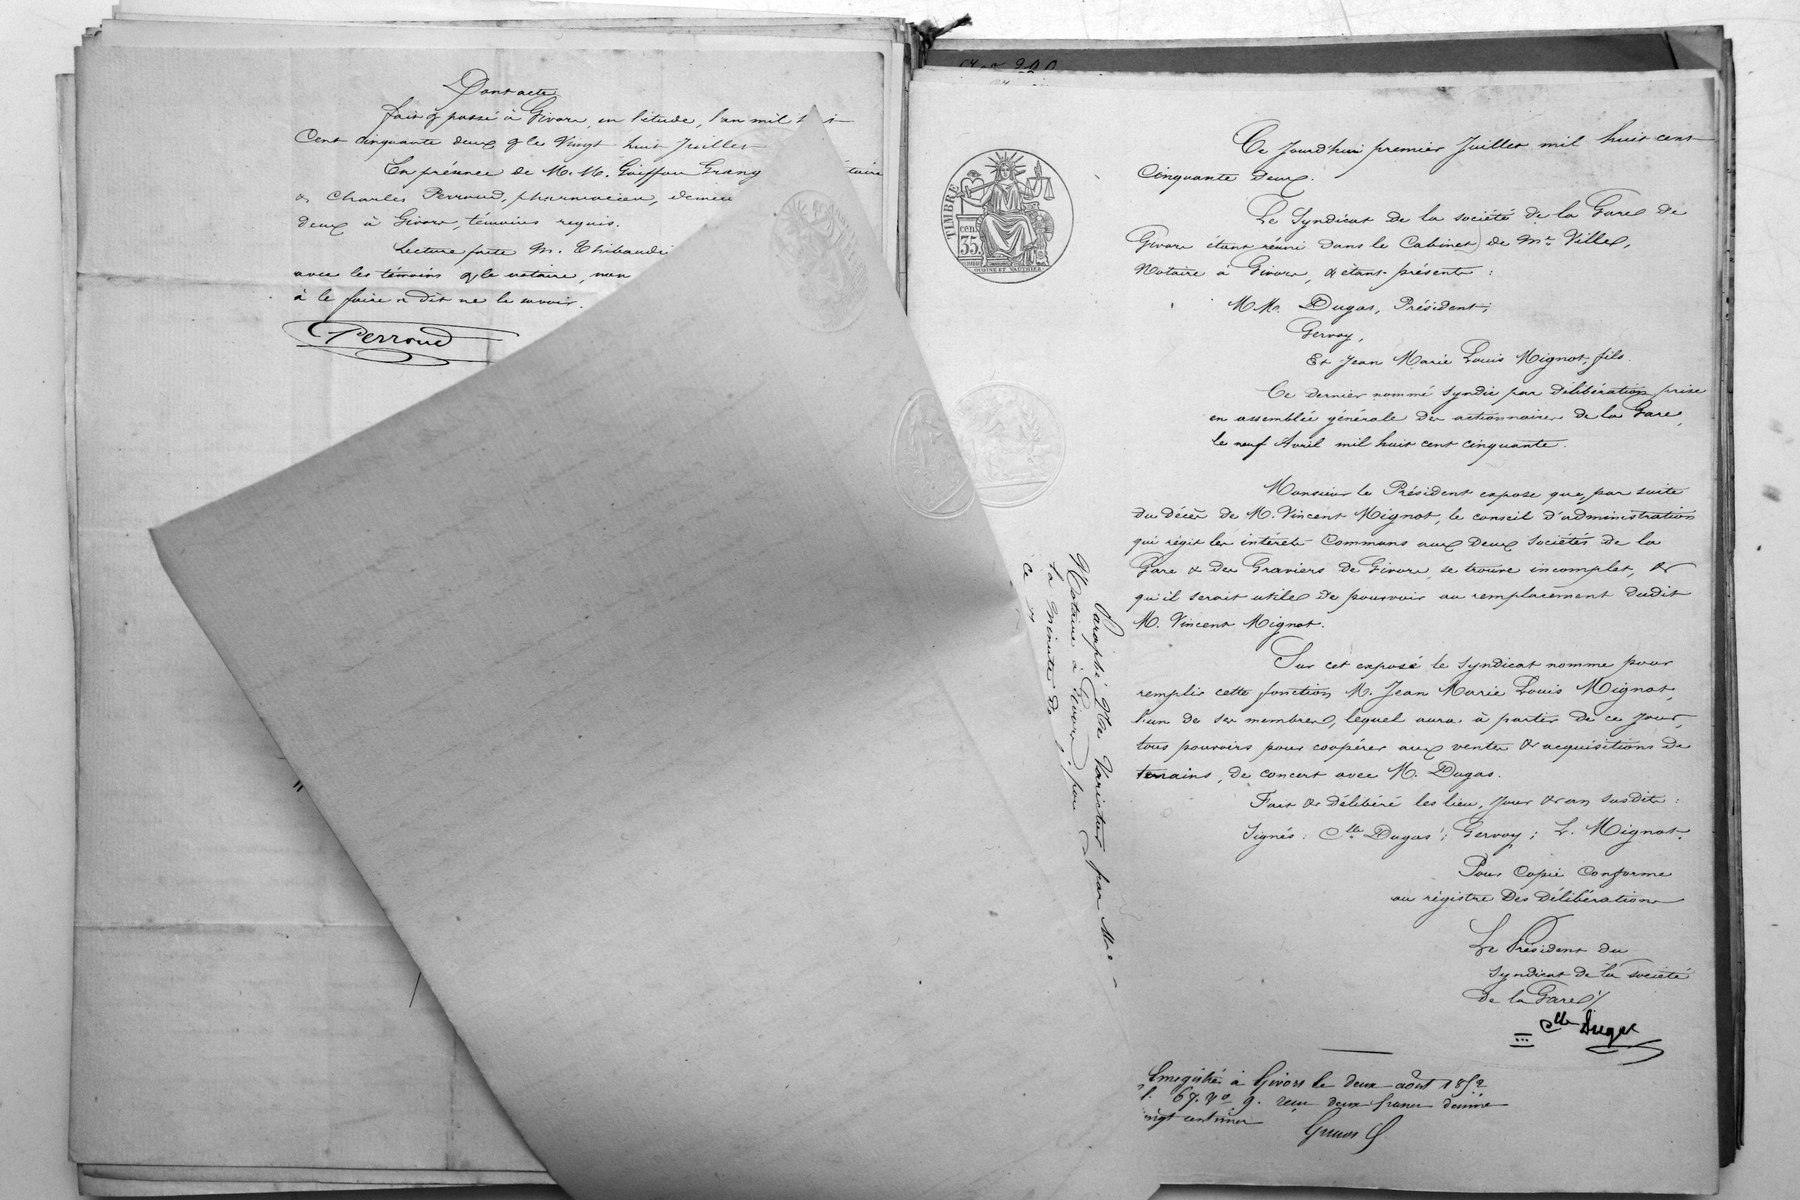 Dont acte
fait & passé à Givors, en l'étude, l'an mil
Cent cinquante deux & le Vingt huit Juillet
En présence de M. M. Goiffon Grang
& Charles Perroud, pharmacien, demeu
deux à Givors, témoins requis.
Lecture faite M. Thibaudi
avec les témoins & le notaire, non
à le faire a dit ne le savoir.
Perroud
Ce Jourd'hui premier Juillet mil huit cent
Cinquante Deux.
Le Syndicat De la société De la Gare De
Givors étant réuni dans le Cabinet de Mr. Ville,
Notaire à Givors, & étant présents :
M. M. Dugas, Président ;
Gervoy,
Et Jean Marie Louis Mignot, fils.
Ce dernier nommé Syndic par délibération prise
en assemblée générale des actionnaires de la Gare,
le neuf Avril mil huit cent cinquante.
Monsieur le Président expose que, par suite
du décès de M. Vincent Mignot, le conseil d'administration
qui régit les intérêts Communs aux Deux Sociétés de la
Gare & des Graviers de Givors, se trouve incomplet, &
qu'il serait utile de pourvoir au remplacement dudit
M. Vincent Mignot.
Sur cet exposé le Syndicat nomme pour
remplir cette fonction M. Jean Marie Louis Mignot,
l'un de ses membres, lequel aura à partir de ce jour,
tous pouvoirs pour coopérer aux ventes & acquisitions de
terrains, de concert avec M. Dugas.
Fait & délibéré les lieu, jour & an susdits :
Signés : Clle Dugas ; Gervoy ; L. Mignot.
Pour Copie Conforme
au régistre Des Délibérations
Le Président du
Syndicat de la société
de la Gare
Clle Dugas
Enregistré à Givors le deux août 1852
f. 67. Vo 9. reçu deux francs décime
vingt centimes
TIMBRE
35
cen
OUDINÉ ET VAUTHIER
Paraphé Ne Varietur par Me
Notaire à Givors, par
la minute de
ce